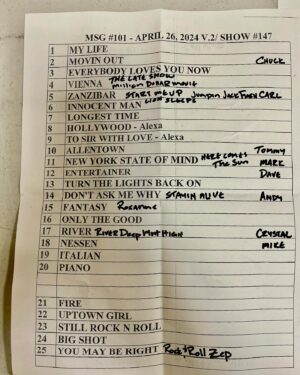 MSG #101 - APRIL 26, 2024 V.2/ SHOW #147
1 MY LIFE
2 MOVIN OUT CHUCK
3 EVERYBODY LOVES YOU NOW
4 VIENNA THE LATE SHOW Million Dollar Movie
5 ZANZIBAR START ME UP Jumpin Jack Flash CARL
6 INNOCENT MAN LION SLEEPS
7 LONGEST TIME
8 HOLLYWOOD - Alexa
9 TO SIR WITH LOVE - Alexa
10 ALLENTOWN TOMMY
11 NEW YORK STATE OF MIND HERE COMES The Sun MARK
12 ENTERTAINER DAVE
13 TURN THE LIGHTS BACK ON
14 DON'T ASK ME WHY STAYIN ALIVE ANDY
15 FANTASY Roxanne
16 ONLY THE GOOD
17 RIVER RIVER DEEP MNT HIGH CRYSTAL
18 NESSEN MIKE
19 ITALIAN
20 PIANO
21 FIRE
22 UPTOWN GIRL
23 STILL ROCK N ROLL
24 BIG SHOT
25 YOU MAY BE RIGHT Rock + Roll Zep